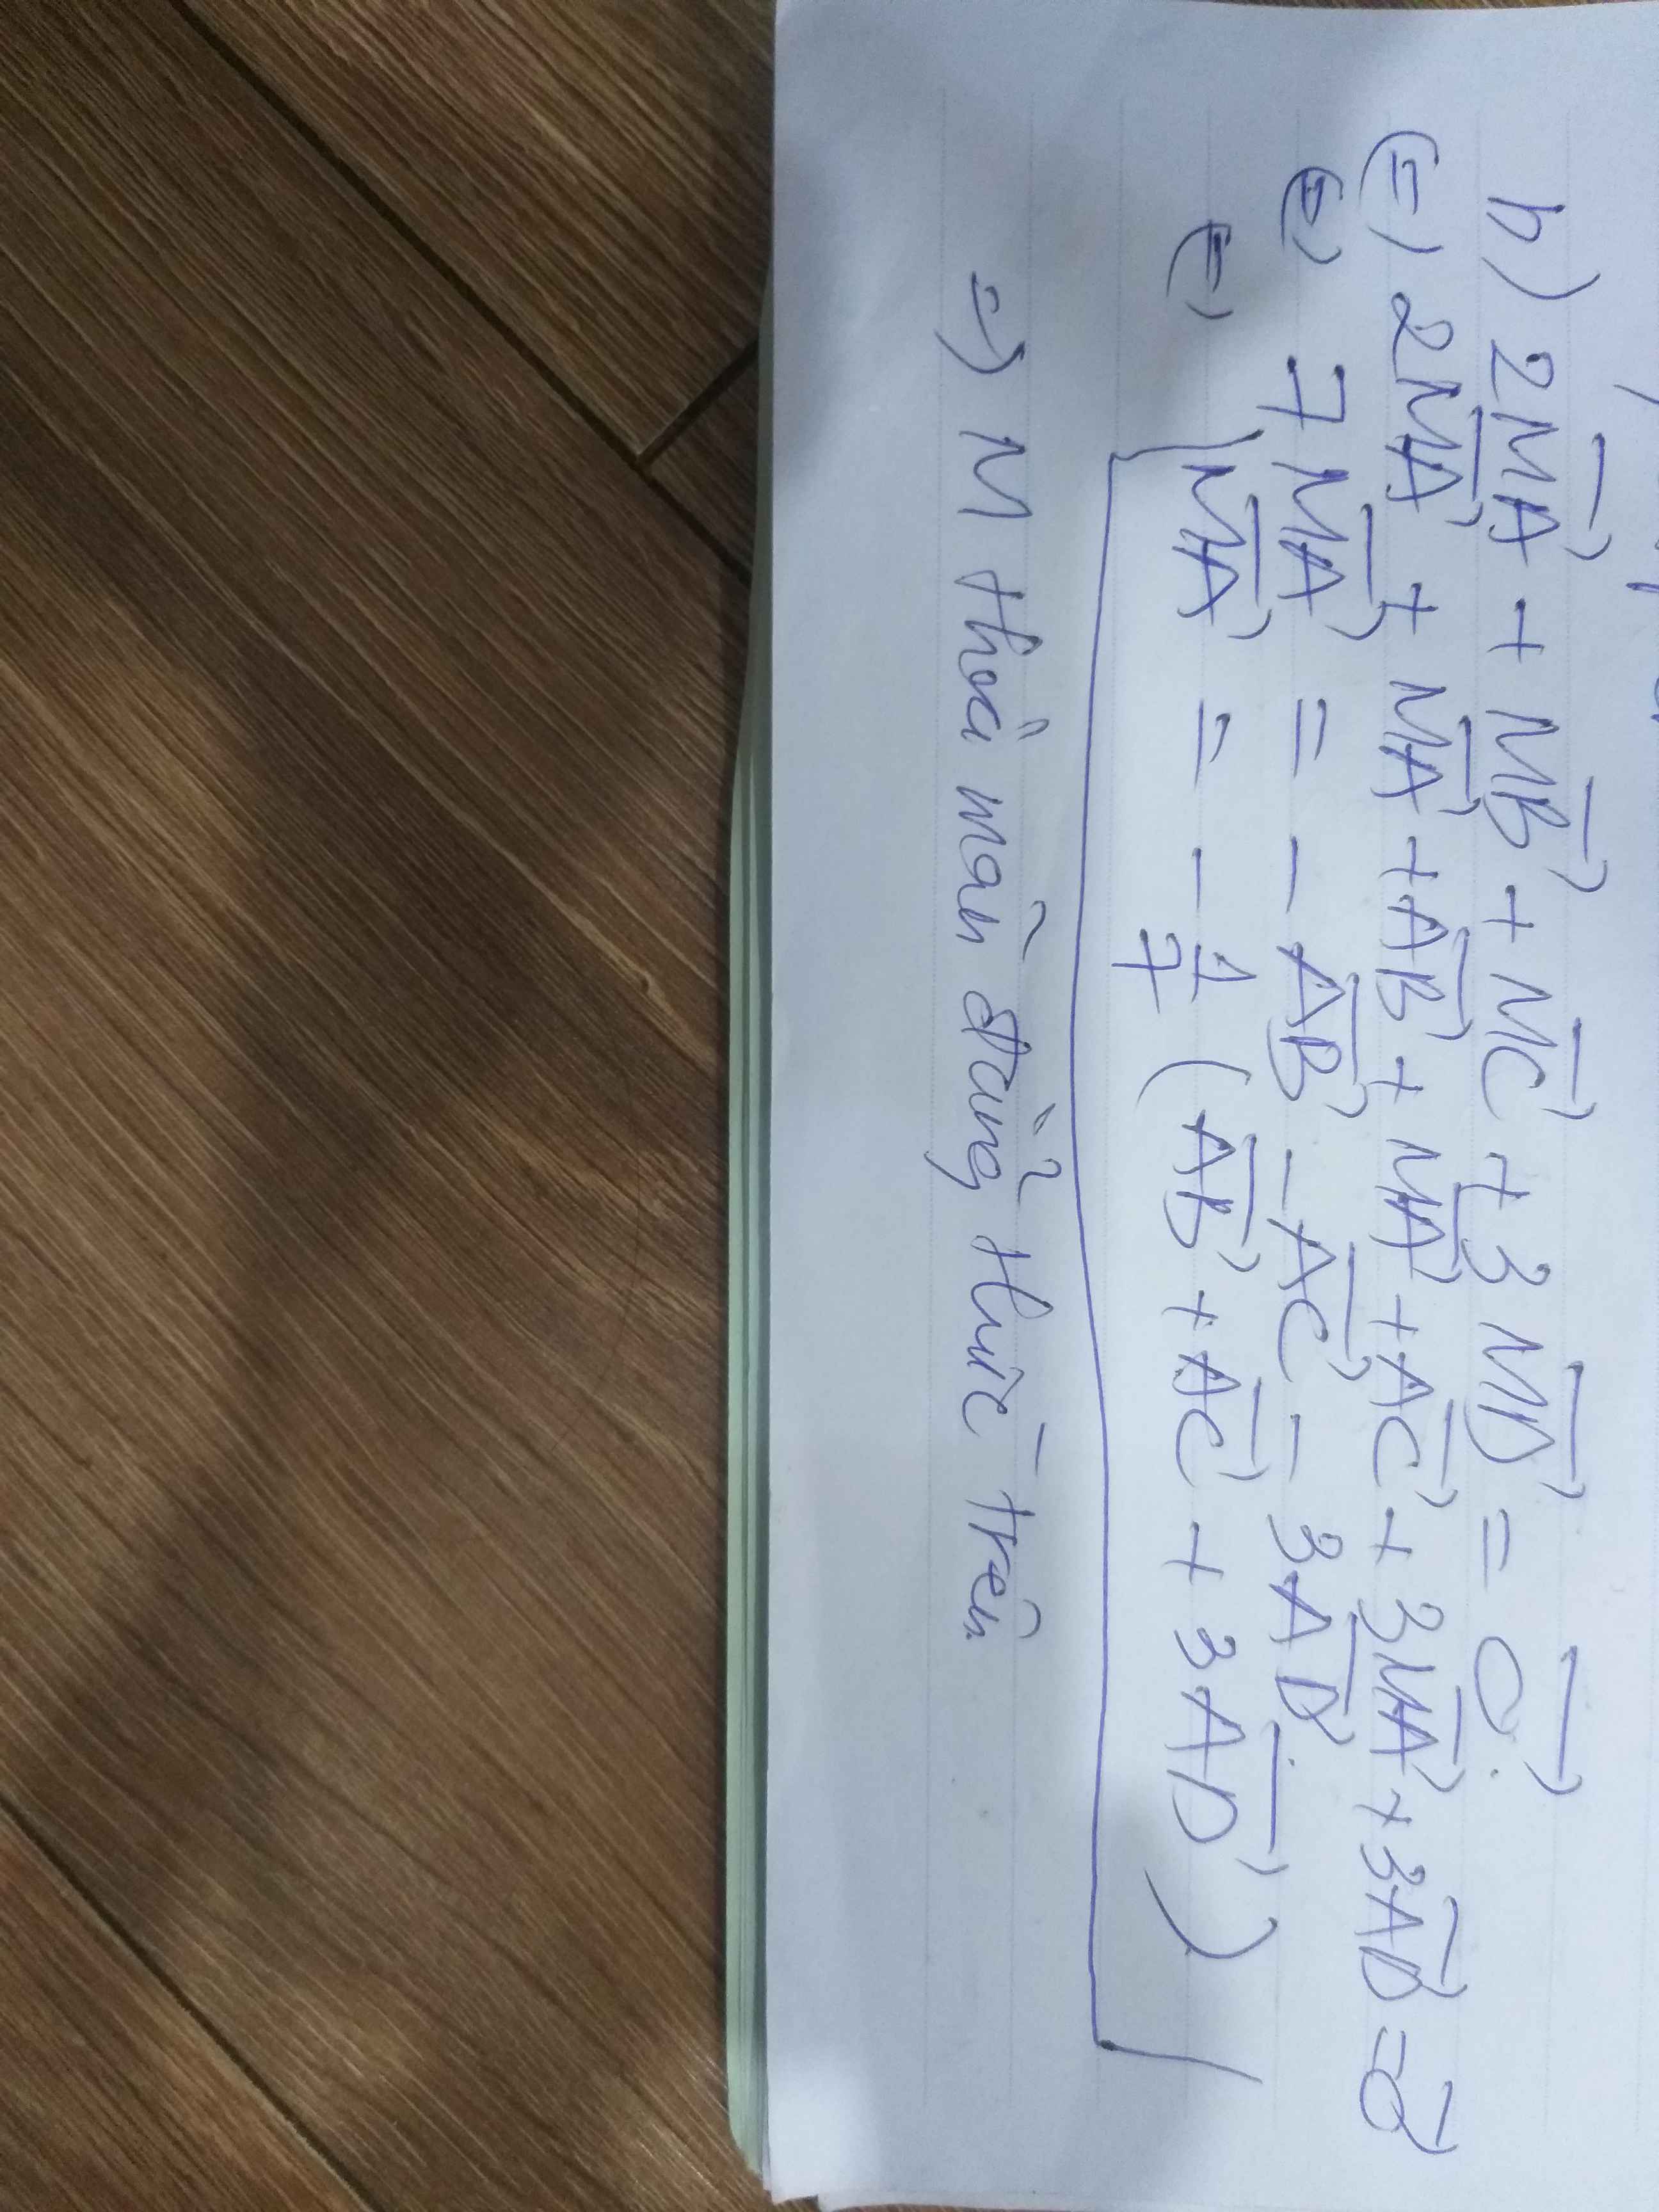 b) 2MA⃗ + MB⃗ + MC⃗ + 3MD⃗ = 0⃗.
(=) 2MA⃗ + MA⃗ + AB⃗ + MA⃗ + AC⃗ + 3MA⃗ + 3AD⃗ = 0⃗
(=) 7MA⃗ = - AB⃗ - AC⃗ - 3AD⃗.
(=) MA⃗ = - 1/7 (AB⃗ + AC⃗ + 3AD⃗)
=) M thoả mãn đẳng thức trên.